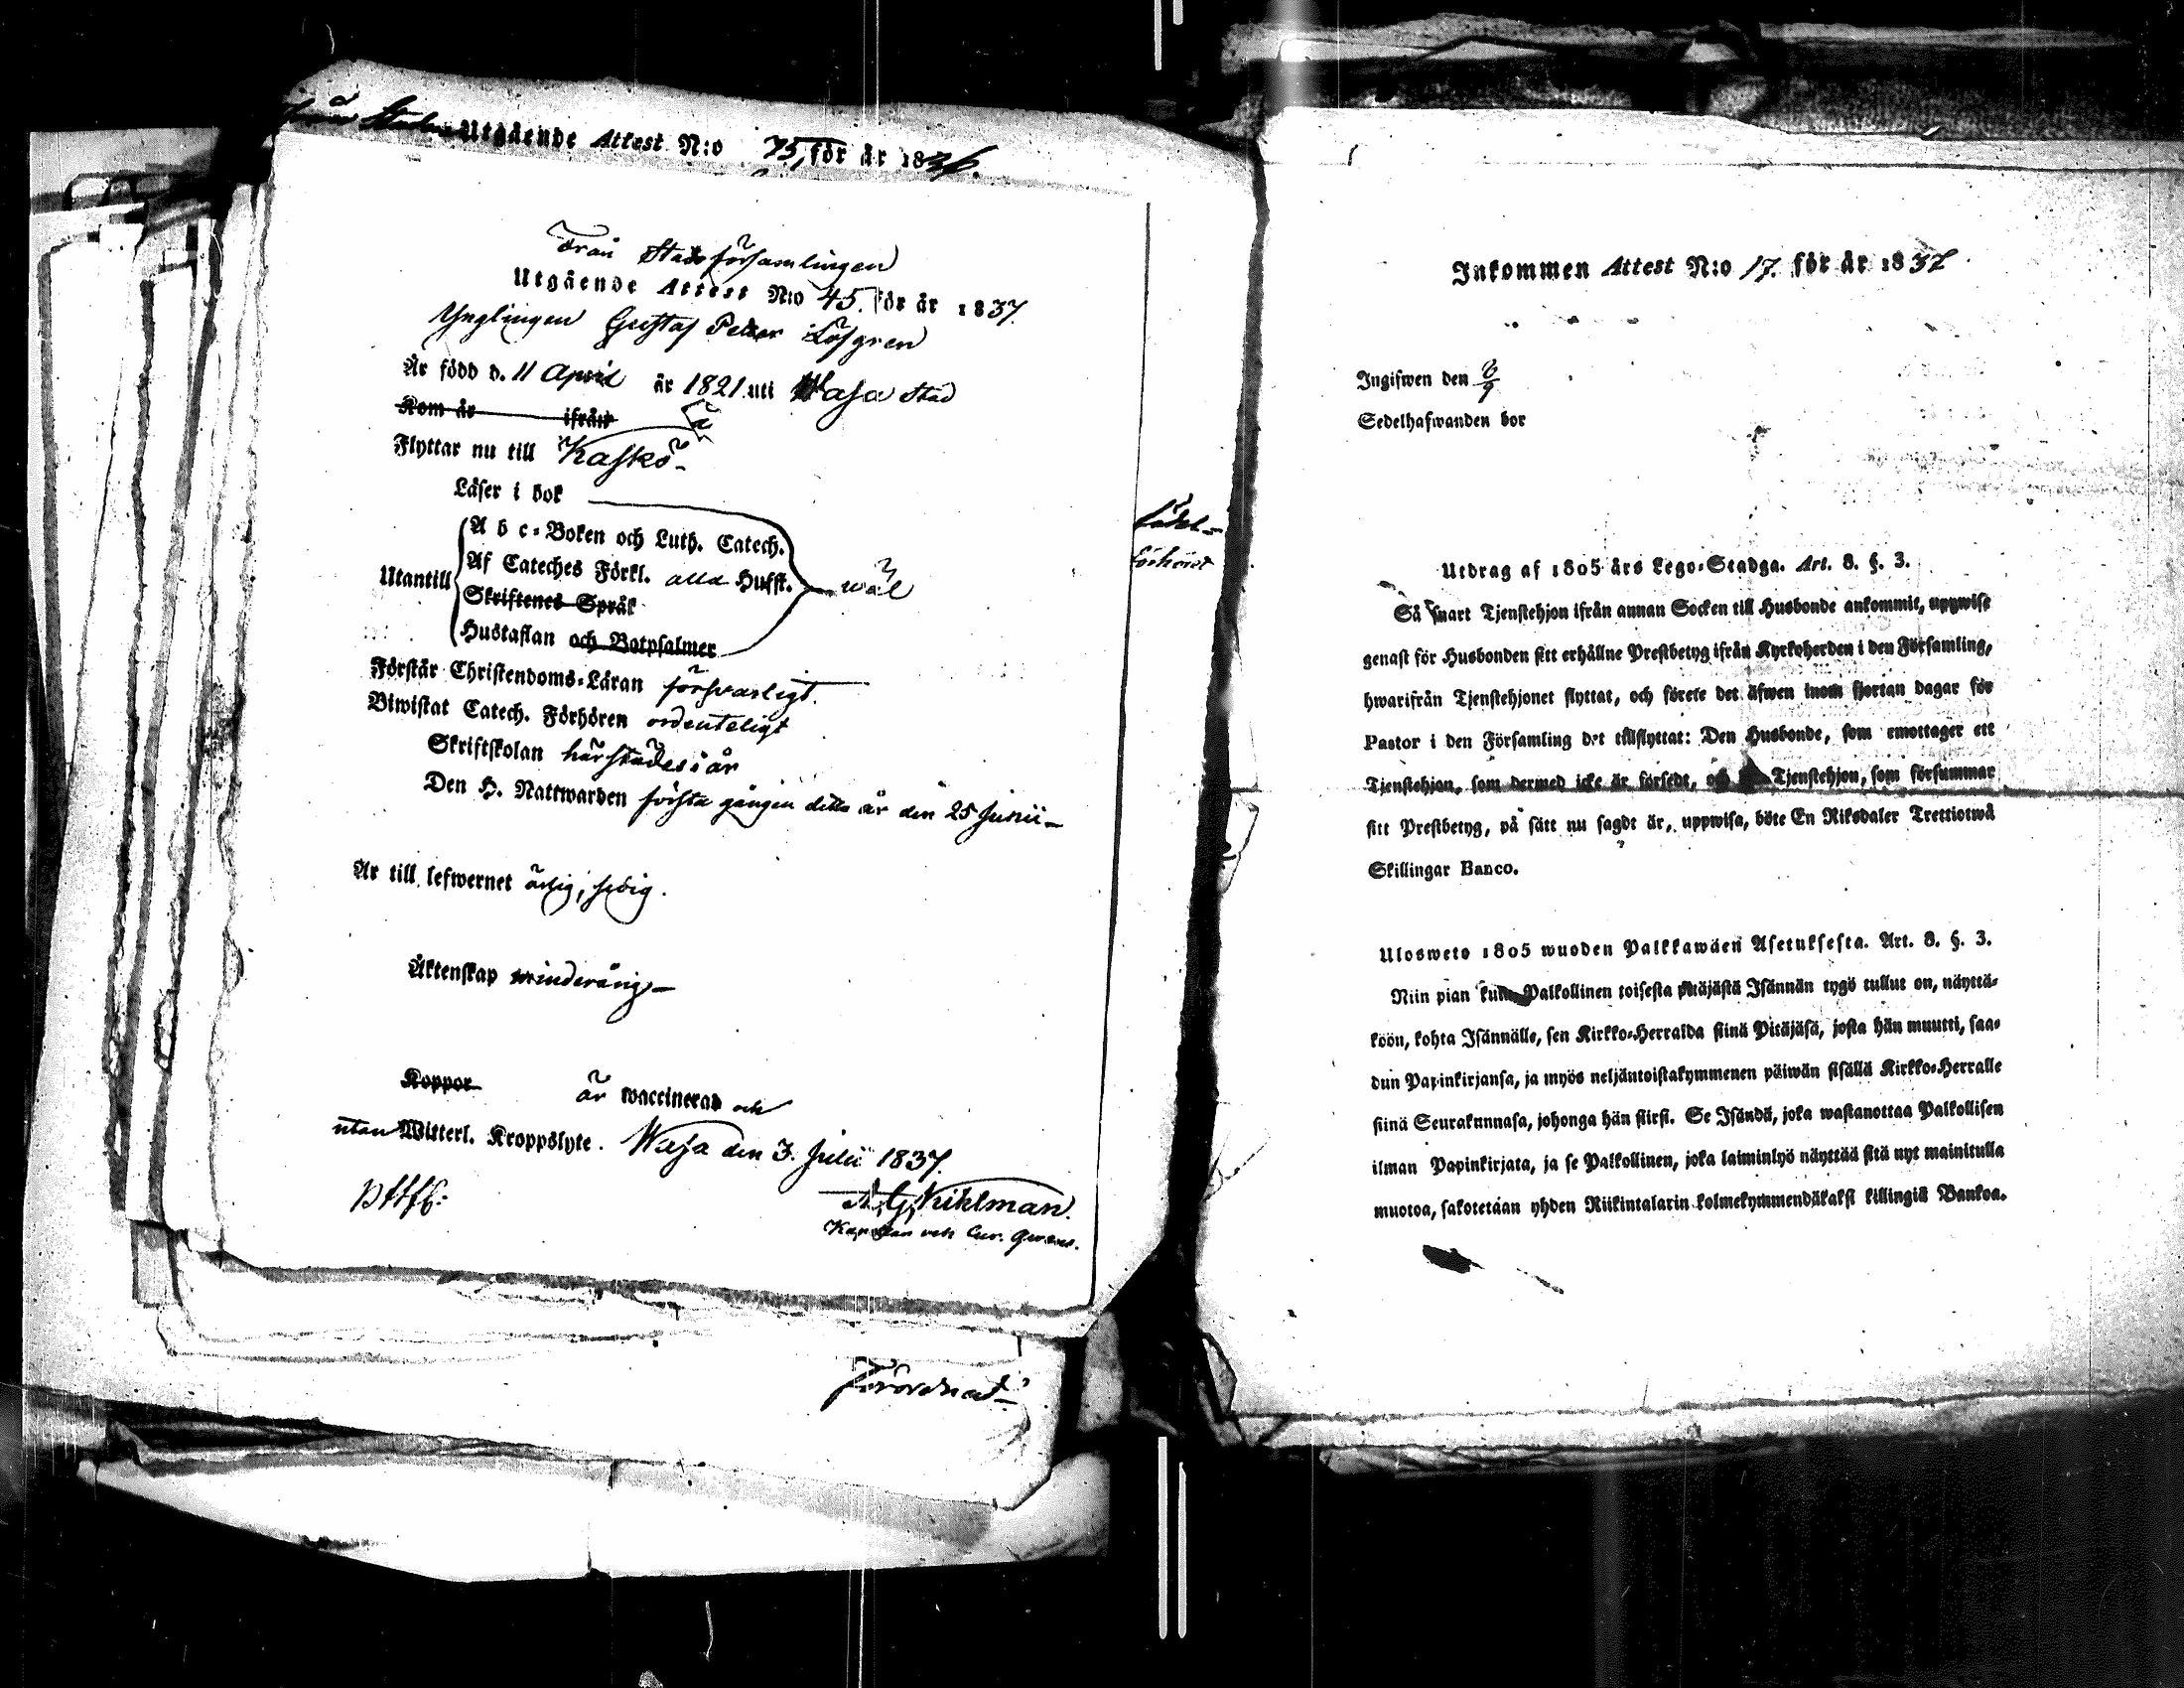 Utgående Attest N:o 75, för år 1836.
Från Stadsförsamlingen
Utgående Attest N:o 45. för år 1837.
Ynglingen Gustaf Peter Löfgren
Är född d. 11 April år 1821 uti Wasa stad
Kom år ifrån
Flyttar nu till Kaskö
Läser i bok
A b c-Boken och Luth. Catech.
Af Cateches Förkl. alla Hufst.
Utantill wäl
Skriftenes Språk
Hustaflan och Botpsalmer
Förstår Christendoms-Läran försvarligt.
Biwistat Catech. Förhören ordenteligt
Skriftskolan härstädes i år
Den H. Nattwarden första gången detta år den 25 Junii
Är till lefwernet ärlig, sedig.
Äktenskap minderårig
Koppor är waccinerad och
utan Witterl. Kroppslyte. Wasa den 3. Julii 1837.
Kapellan och
Förordnad
Inkommen Attest N:o 17. för år 1837
Ingifwen den 6/9
Sedelhafwanden bor
Utdrag af 1805 års Lego-Stadga. Art. 8. §. 3.
Så snart Tjenstehjon ifrån annan Socken till Husbonde ankommit, uppwise
genast för Husbonden sitt erhållne Prestbetyg ifrån Kyrkoherden i den Församling,
hwarifrån Tjenstehjonet flyttat, och förete det äfwen inom fjortan dagar för
Pastor i den Församling det tillflyttat: Den Husbonde, som emottager ett
Tjenstehjon, som dermed icke är försedt, och Tjenstehjon, som försummar
sitt Prestbetyg, på sätt nu sagdt är, uppwisa, böte En Riksdaler Trettiotwå
Skillingar Banco.
Ulosweto 1805 wuoden Palkkawäen Asetuksesta. Art. 8. §. 3.
Niin pian kuin Palkollinen toisesta pitäjästä Isännän tygö tullut on, näyttä-
köön, kohta Isännälle, sen Kirkko-Herralda siinä Pitäjäsä, josta hän muutti, saa-
dun Papinkirjansa, ja myös neljäntoistakymmenen päiwän sisällä Kirkko-Herralle
siinä Seurakunnasa, johonga hän siirsi. Se Isändä, joka wastanottaa Palkollisen
ilman Papinkirjata, ja se Palkollinen, joka laiminlyö näyttää sitä nyt mainitulla
muotoa, sakotetaan yhden Riikintalarin kolmekymmendäkaksi killingiä Bankoa.